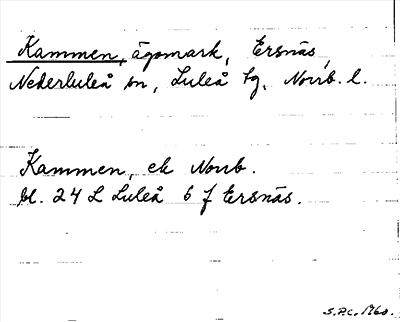 Kammen, ägomark, Ersnäs,
Nederluleå sn, Luleå tg, Norrb. l.
Kammen, ek Norrb.
bl. 24 L Luleå 6 f Ersnäs.
S.P.C. 1960.